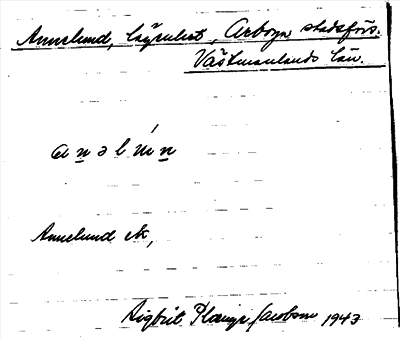 Annelund, lägenhet, Arboga stadsförs.
Västmanlands län.
anəlún
Annelund ek,
Sigbrit Plænge Jacobson 1943